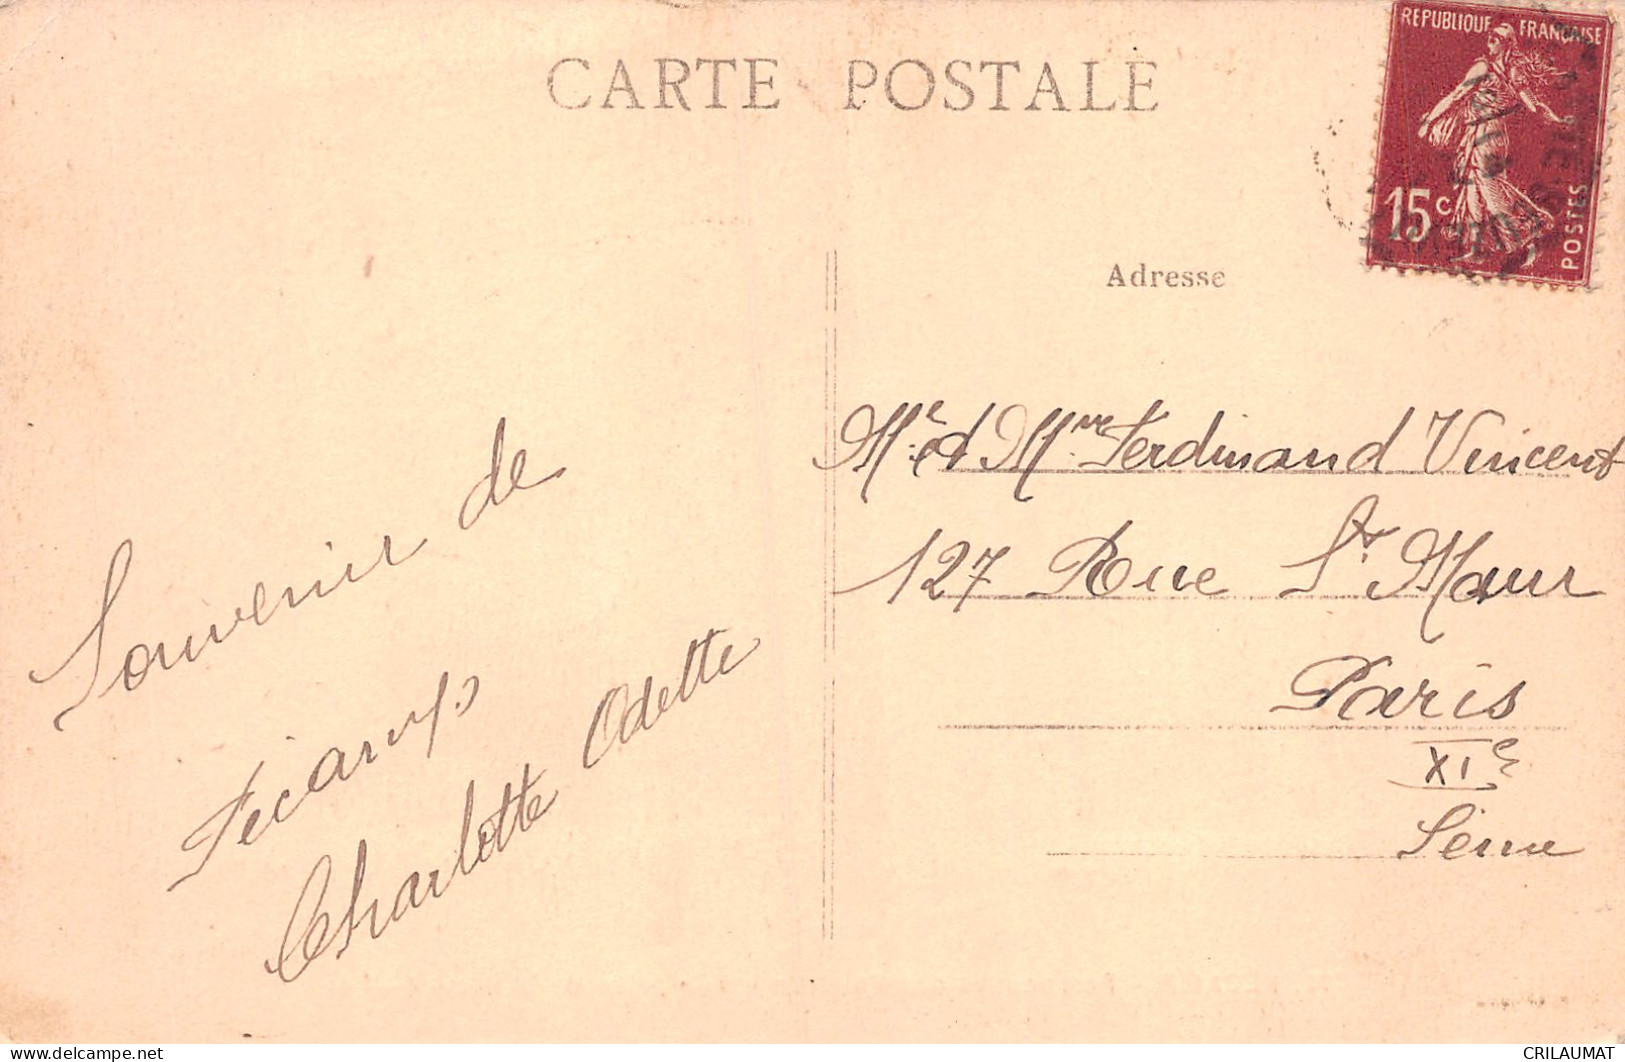 CARTE POSTALE
REPUBLIQUE FRANÇAISE
15c
POSTES
Adresse
Souvenir de
Fécamp
Charlotte Odette
Mr et Mme Ferdinand Vincent
127 Rue St Maur
Paris
XIe
Seine
www.delcampe.net
CRILAUMAT